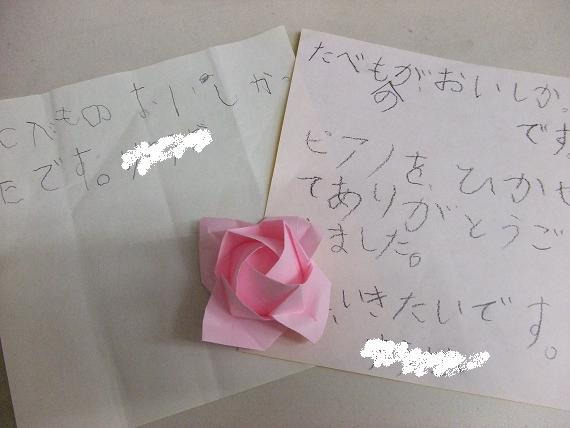 たべもの おいしかっ
たです。
たべものがおいしかっ
です。
ピアノを、ひかせ
てありがとうご
いました。
いきたいです。